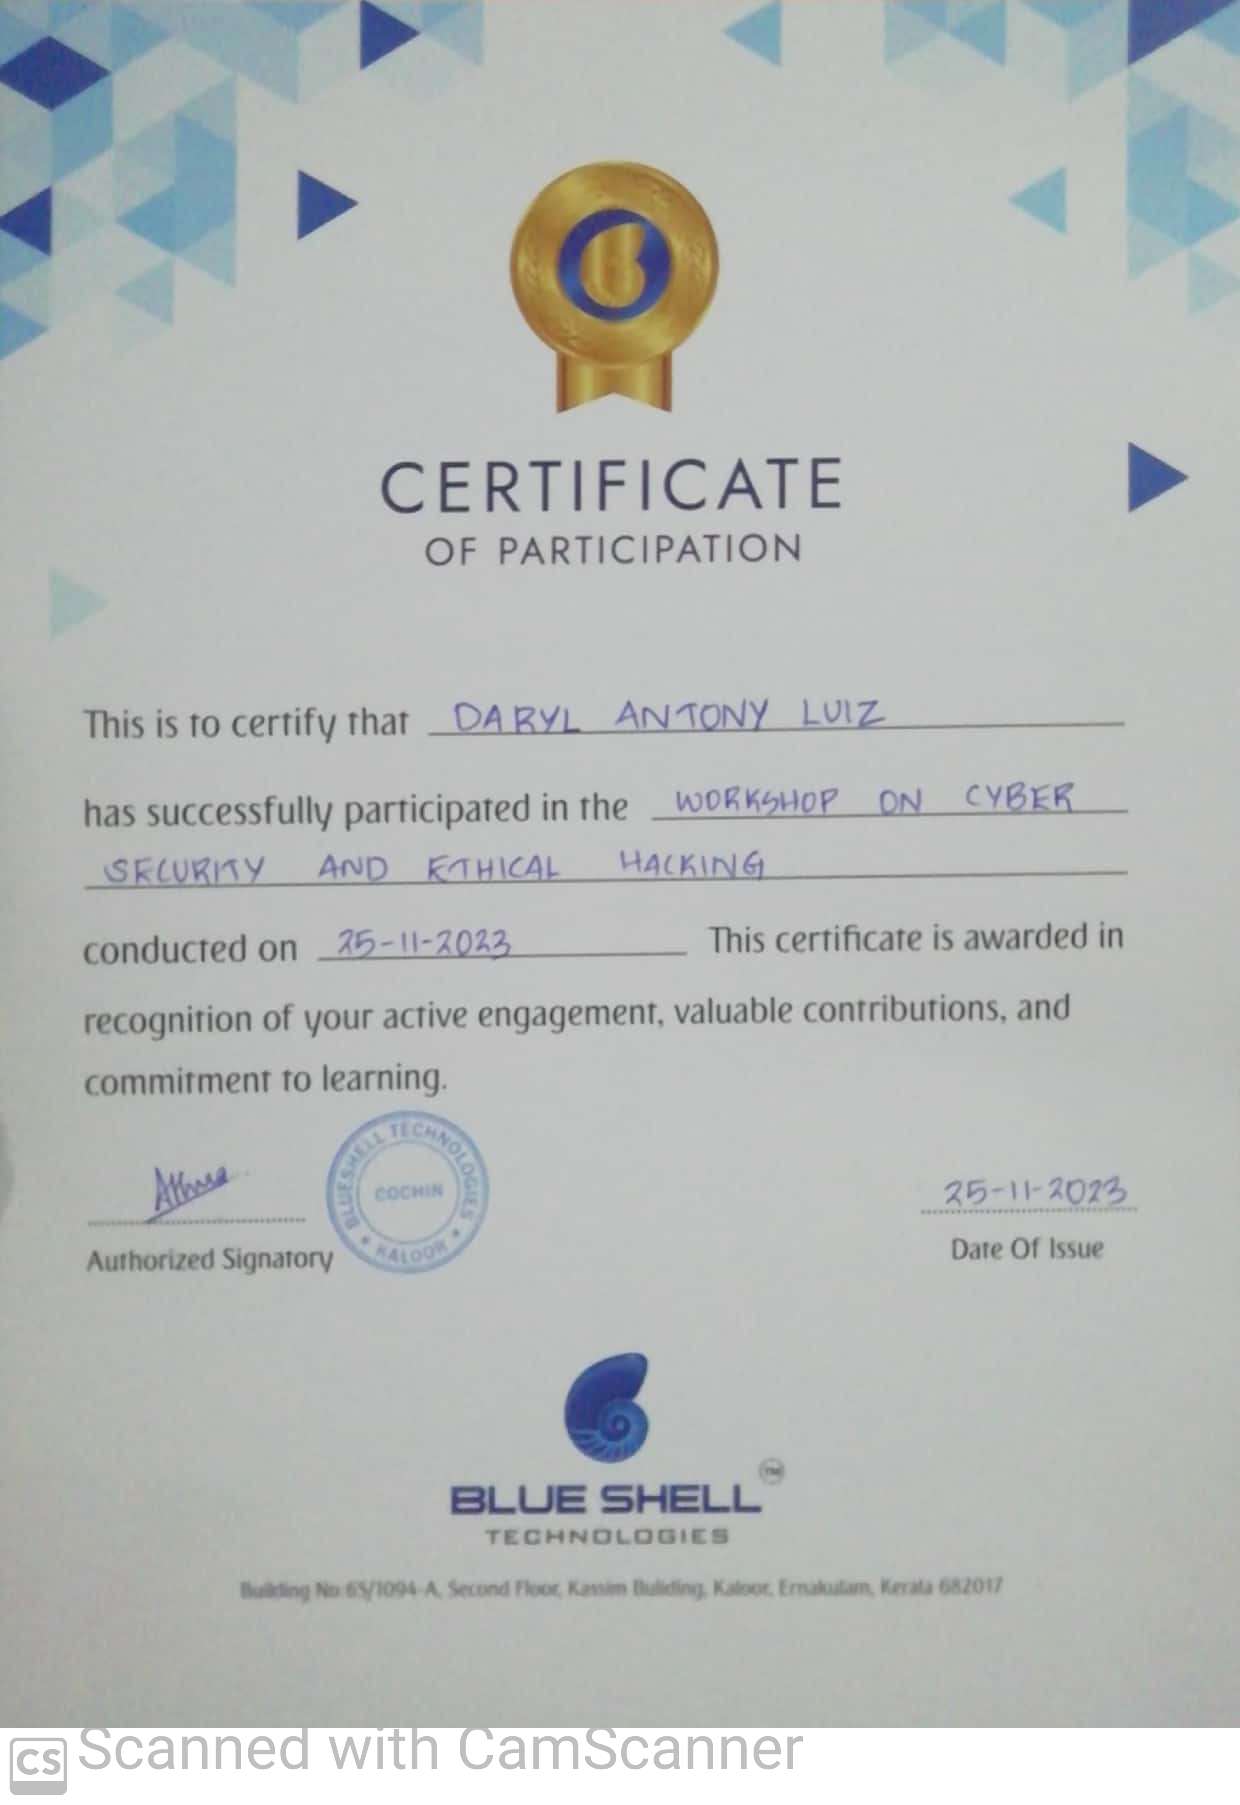 CERTIFICATE
OF PARTICIPATION
This is to certify that DARYL ANTONY LUIZ
has successfully participated in the WORKSHOP ON CYBER
SECURITY AND ETHICAL HACKING
conducted on 25-11-2023 This certificate is awarded in
recognition of your active engagement, valuable contributions, and
commitment to learning.
BLUESHELL TECHNOLOGIES
COCHIN
• KALOOR •
25-11-2023
Authorized Signatory
Date Of Issue
BLUE SHELL TM
TECHNOLOGIES
Building No 65/1094-A, Second Floor, Kassim Buliding, Kaloor, Ernakulam, Kerala 682017
CS Scanned with CamScanner